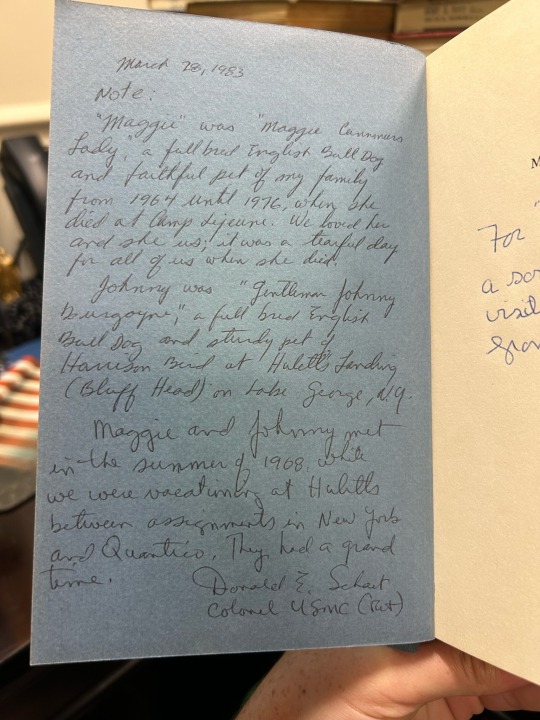 March 28, 1983
Note:
"Maggie" was "Maggie Cummers
Lady," a full bred English Bull Dog
and faithful pet of my family
from 1964 until 1976, when she
died at Camp Lejeune. We loved her
and she us; it was a tearful day
for all of us when she died.
Johnny was "Gentleman Johnny
Burgoyne," a full bred English
Bull Dog and sturdy pet of
Harrison Bird at Huletts Landing
(Bluff Head) on Lake George, N.Y.
Maggie and Johnny met
in the summer of 1968, while
we were vacationing at Huletts
between assignments in New York
and Quantico. They had a grand
time.
Donald E.
Colonel USMC (Ret)
M
For "
a
visit